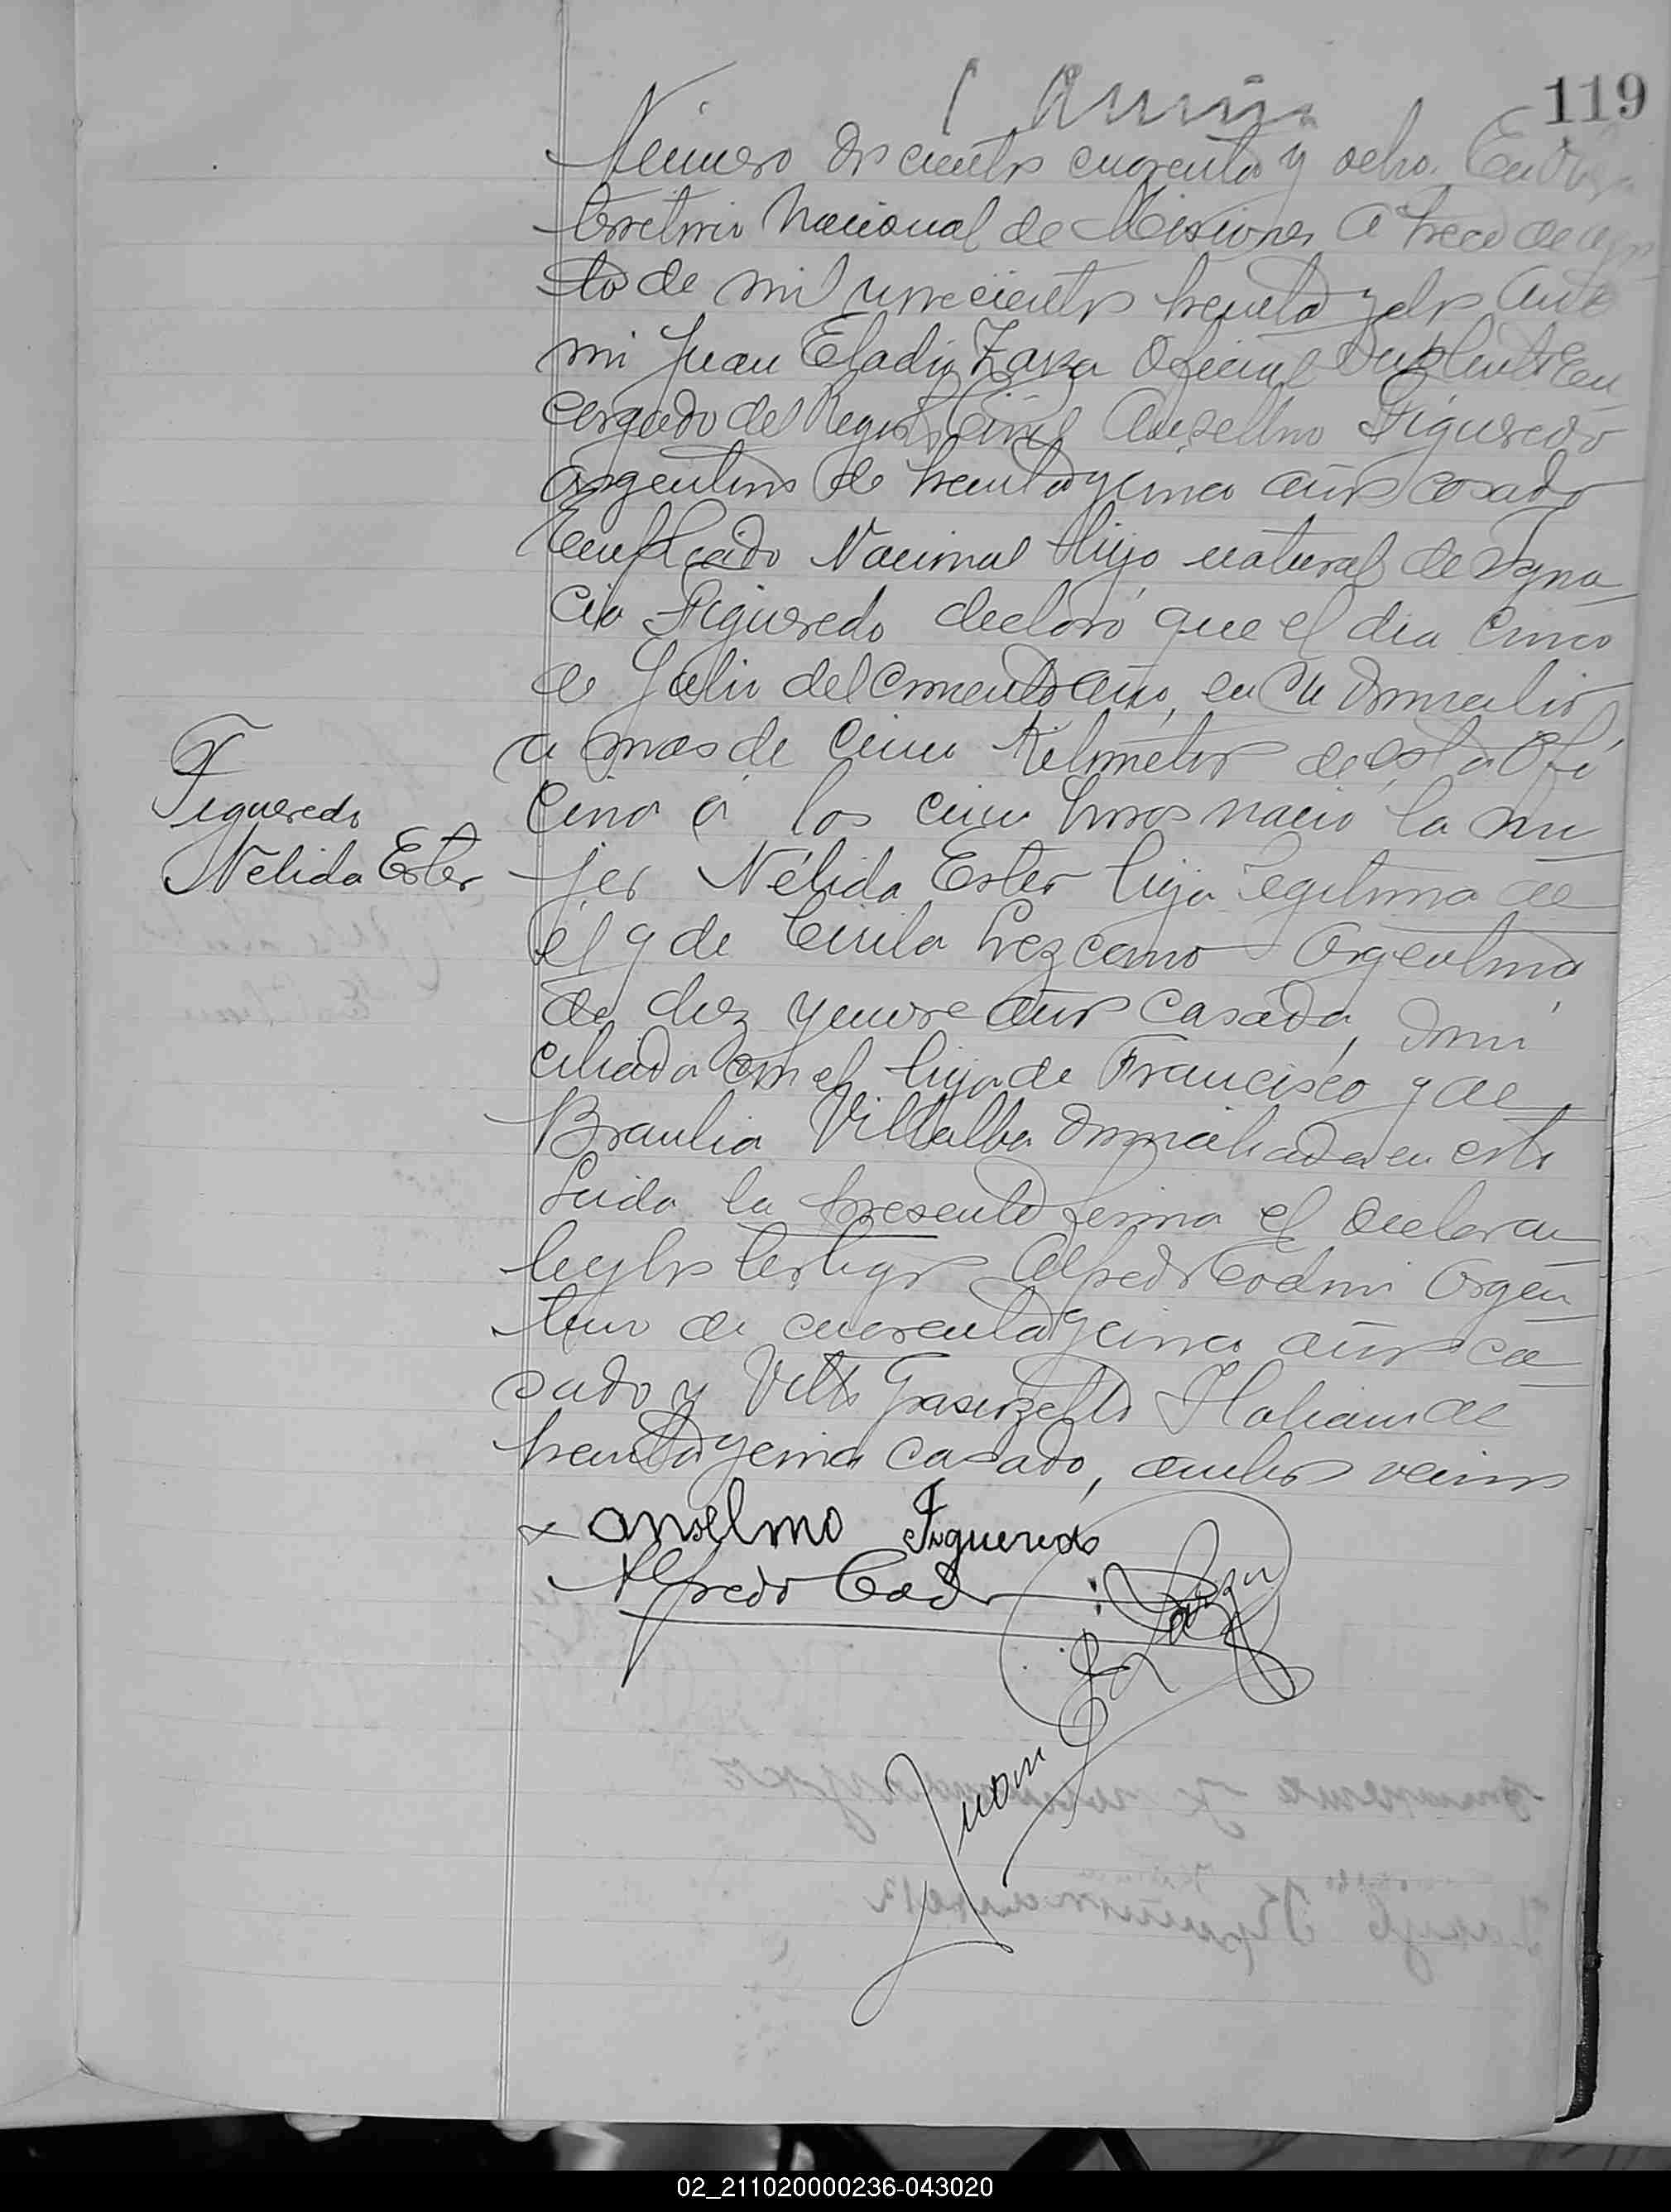 119
Número doscientos cuarenta y ocho. En
Territorio Nacional de Misiones a trece de agos
to de mil novecientos treinta y dos Ante
mi Juan Eladio Zarza Oficial Suplente En
cargado del Registro Civil Anselmo Figueredo
argentino de treinta y cinco años casado
Empleado Nacional Hijo natural de Igna
cia Figueredo declaró que el dia cinco
de Julio del corriente año, en su domicilio
a mas de cinco Kilometros de esta Ofi
cina a las cinco horas nació la mu
Figueredo
Nelida Ester
jer Nélida Ester hija legitima de
él y de Cirila Lezcano Argentina
de diez y nueve años casada, domi
ciliada con el hija de Francisco y de
Braulia Villalba domiciliada en esta
Leida la presente firma el declaran
te y los testigos Alfredo Argen
tino de cuarenta y cinco años ca
sado y Italiano de
treinta y cinco casado, ambos vecinos
x Anselmo Figueredo
Alfredo
Juan E Zarza
02_211020000236-043020